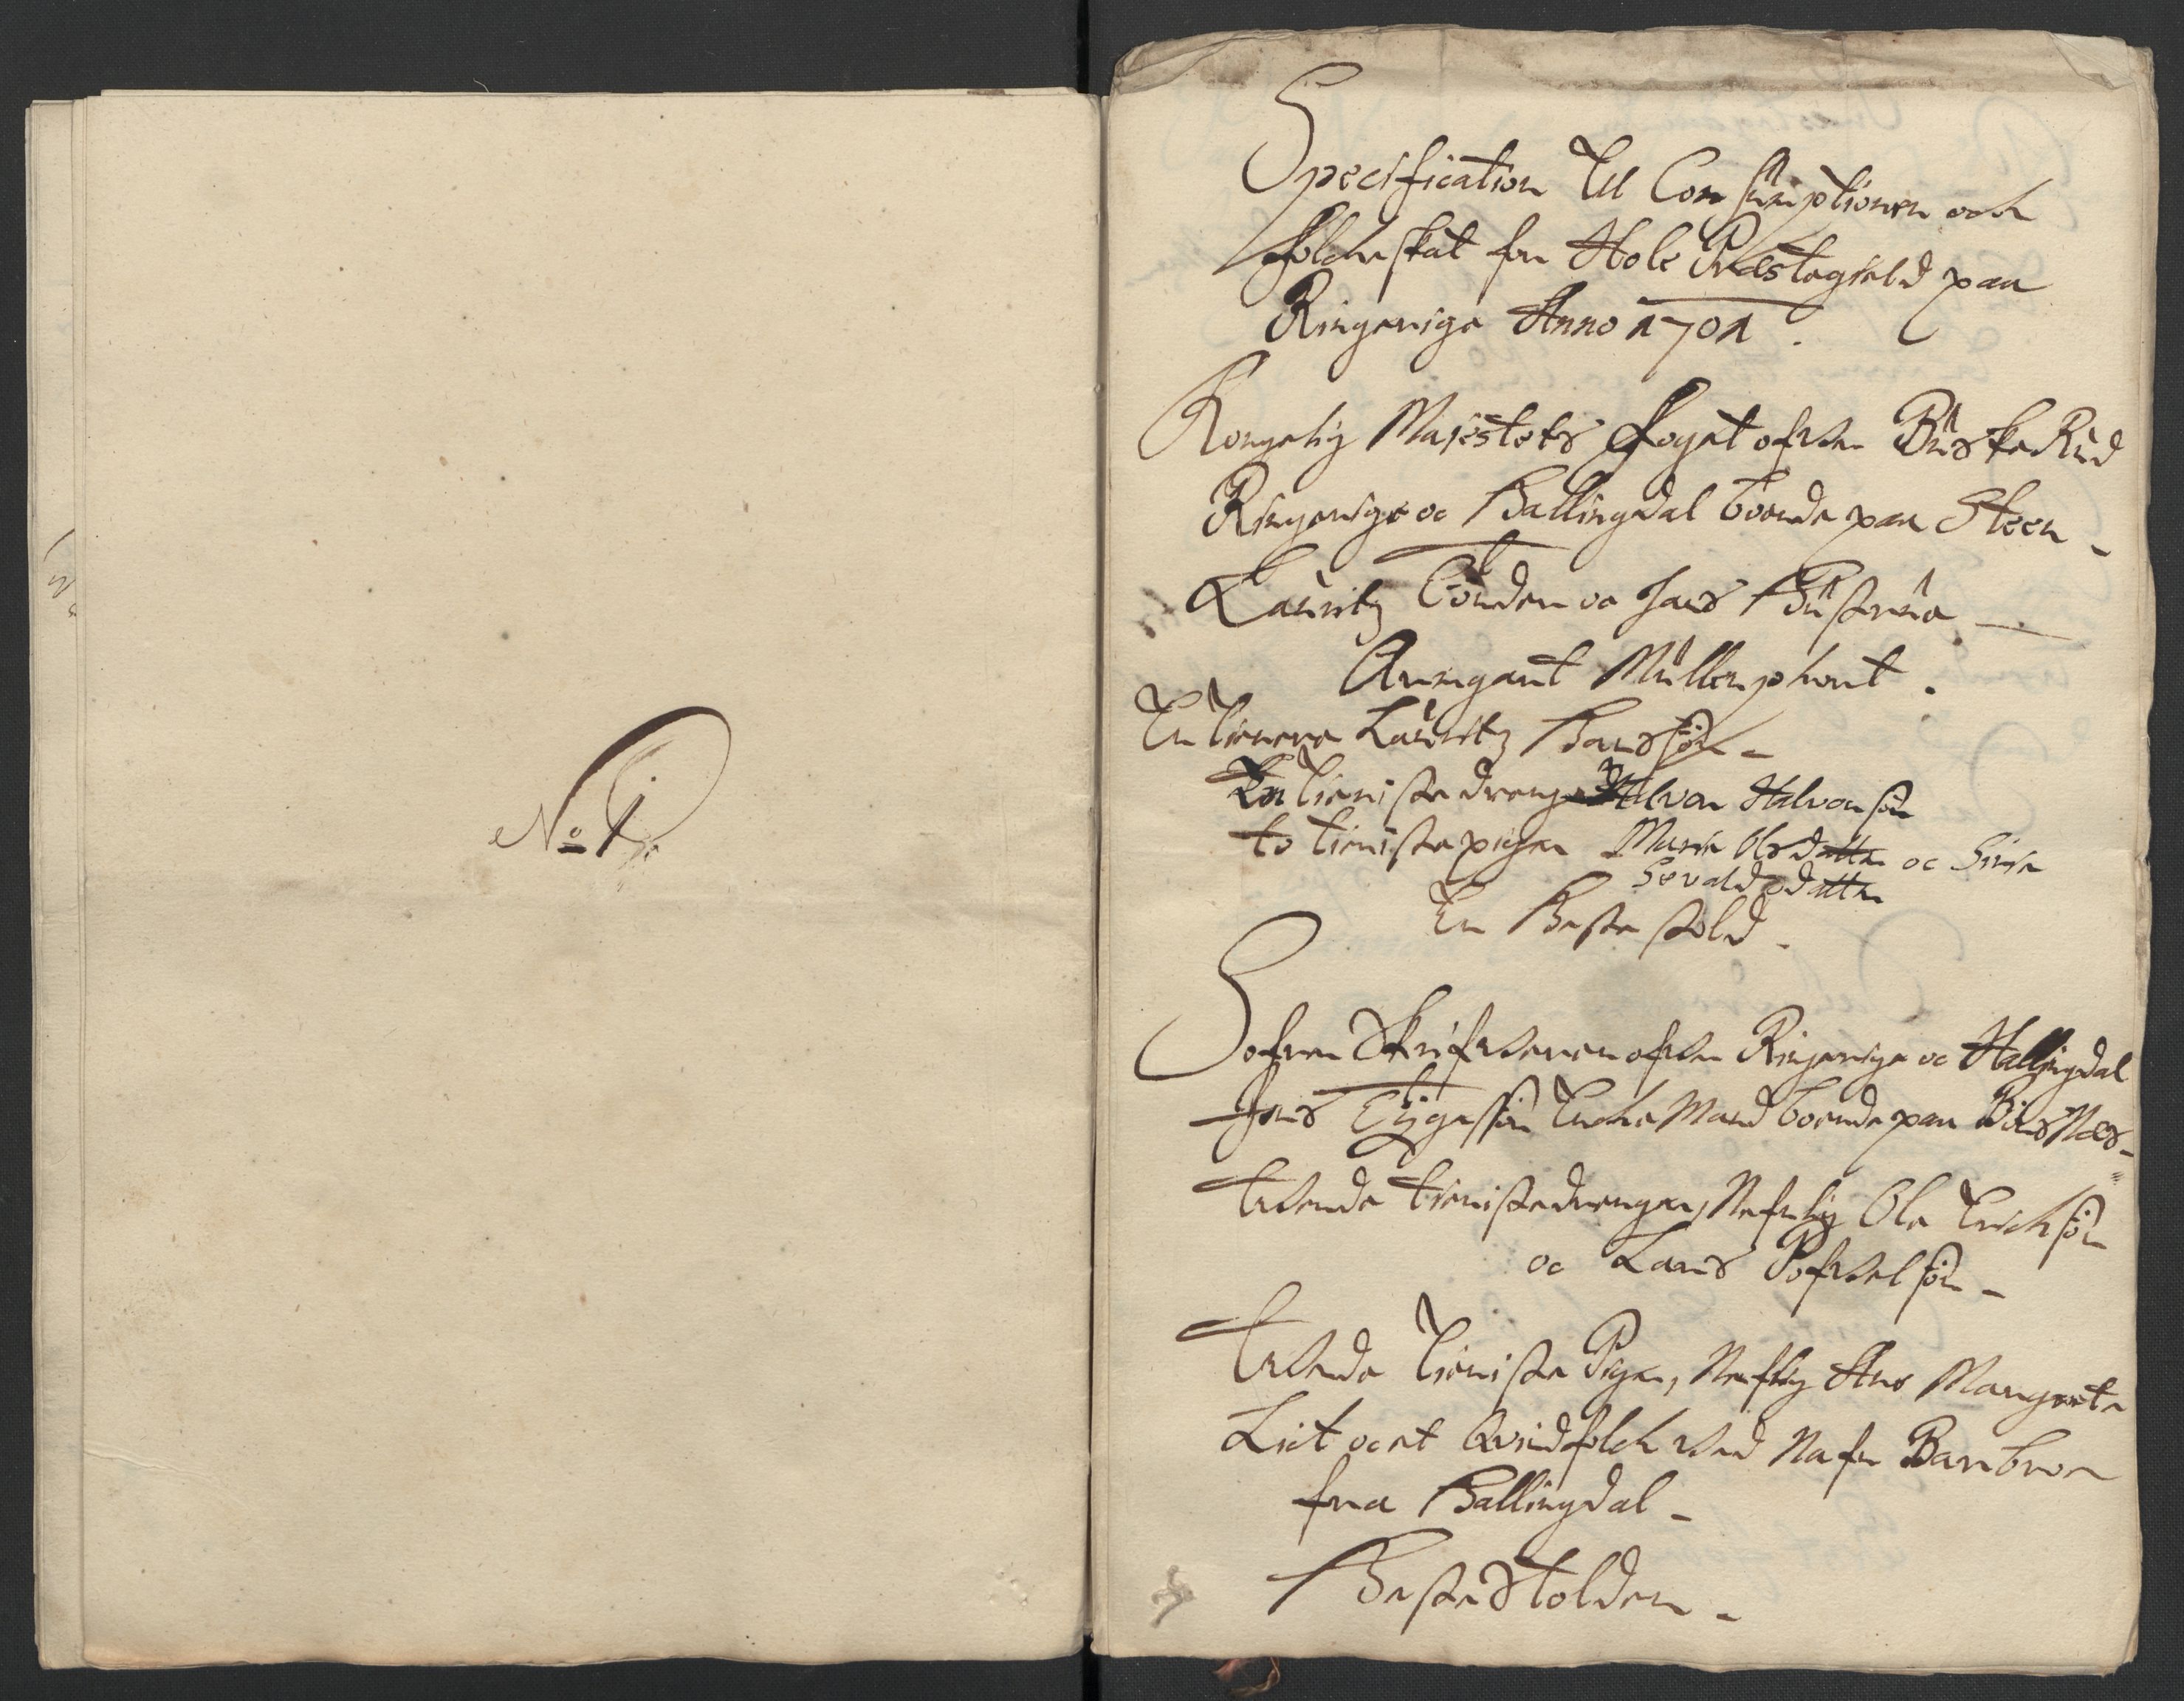 No 1.
Specification Til Consumptionen och
folcheskat for Hole Præstegield paa
Ringerige Anno 1701.
Kongelig Majestets foget ofver Buskerud
Ringerige oc Hallingdal boende paa Steen -
Lauritz Tønder oc hans Hustrue
Armgart Müllenphort.
En tienere Lauritz Hansøn -
En tienistedreng Halvor Halvorsøn
to tienistepiger Marie Olsdatter oc Siri
Sevaldsdatter
En Hestestold -
Sorenskrifveren ofver Ringerige oc Hallingdal
Jens Tygesøn Enche Mand boende paa Bønsnes -
tvende tienistedrenger, Nefnlig Ole Erichsøn
oc Lars Pofvelsøn -
tvende tieniste Piger, Nefnlig Ane Margrete
oc et Qvindfolch ved Nafn Barbroe
fra Hallingdal -
Hestestolden -